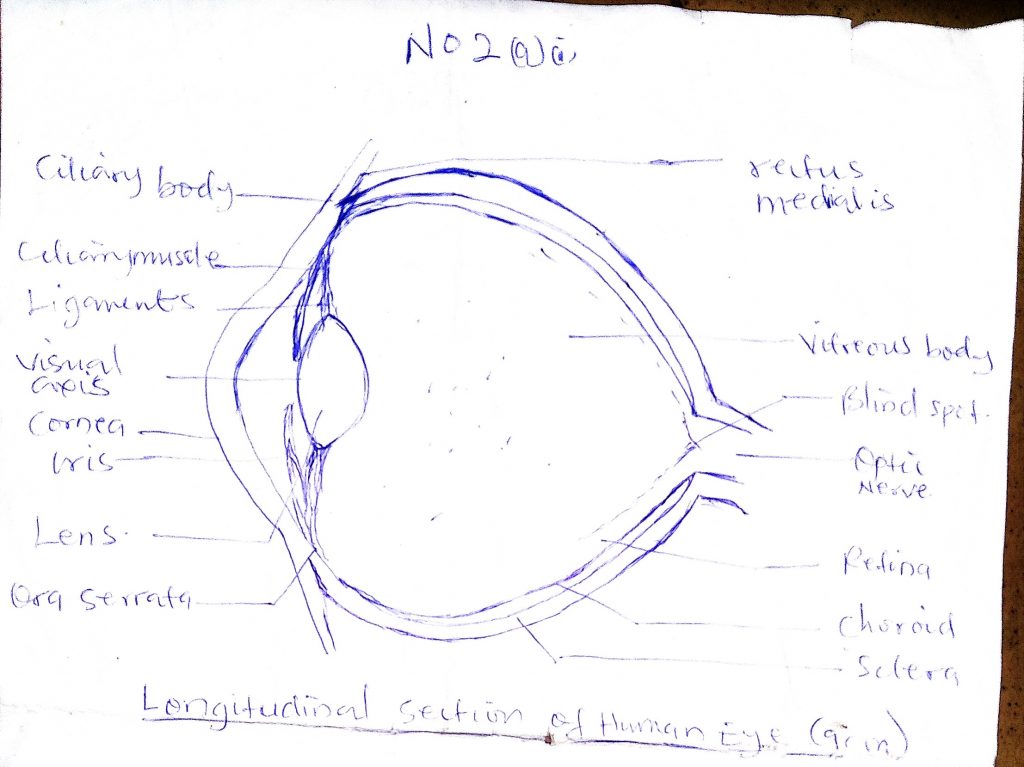 NO 2 (a) (i)
Ciliary body
Ciliary muscle
Ligaments
Visual
axis
Cornea
Iris
Lens.
Ora serrata
rectus
medialis
Vitreous body
Blind spot.
Optic
Nerve
Retina
Choroid
Sclera
Longitudinal section of Human Eye